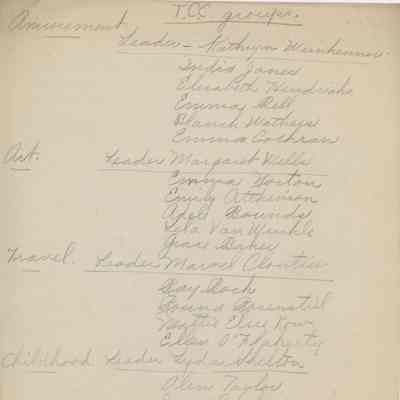 T.C.C. groups.
Amusement
Leader - Kathryn
India Jones
Elizabeth Hendricks
Emma Bell
Blanch Watkeys
Emma Cochran
Art. Leader Margaret Wells
Emma Horton
Emily Attkinson
Adele Bounds
Lela Van Winkle
Grace Baker
Travel. Leader Cloutier
Ray Bach
Rosenstiel
Mattie Elsie
Ellen O'Flaherty
Childhood Leader Lyda Shelton
Taylor